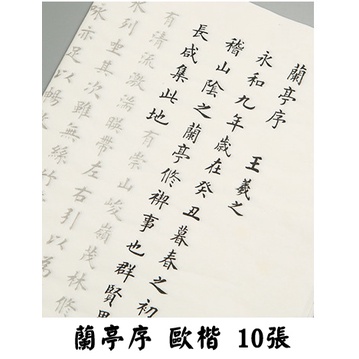 蘭亭序 王羲之
永和九年歲在癸丑暮春之初
稽山陰之蘭亭修禊事也群賢
長咸集此地有崇山峻嶺茂林修
有清流激湍映帶左右引以為
列坐其次雖無絲竹
亦足以暢
蘭亭序 歐楷 10張